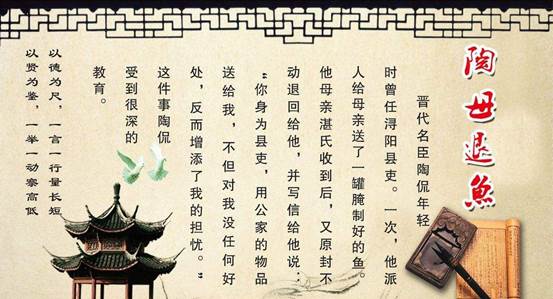 陶母退鱼
晋代名臣陶侃年轻
时曾任浔阳县吏。一次，他派
人给母亲送了一罐腌制好的鱼。
他母亲湛氏收到后，又原封不
动退回给他，并写信给他说：
“你身为县吏，用公家的物品
送给我，不但对我没任何好
处，反而增添了我的担忧。”
这件事陶侃
受到很深的
教育。
以德为尺，一言一行量长短
以贤为鉴，一举一动察高低